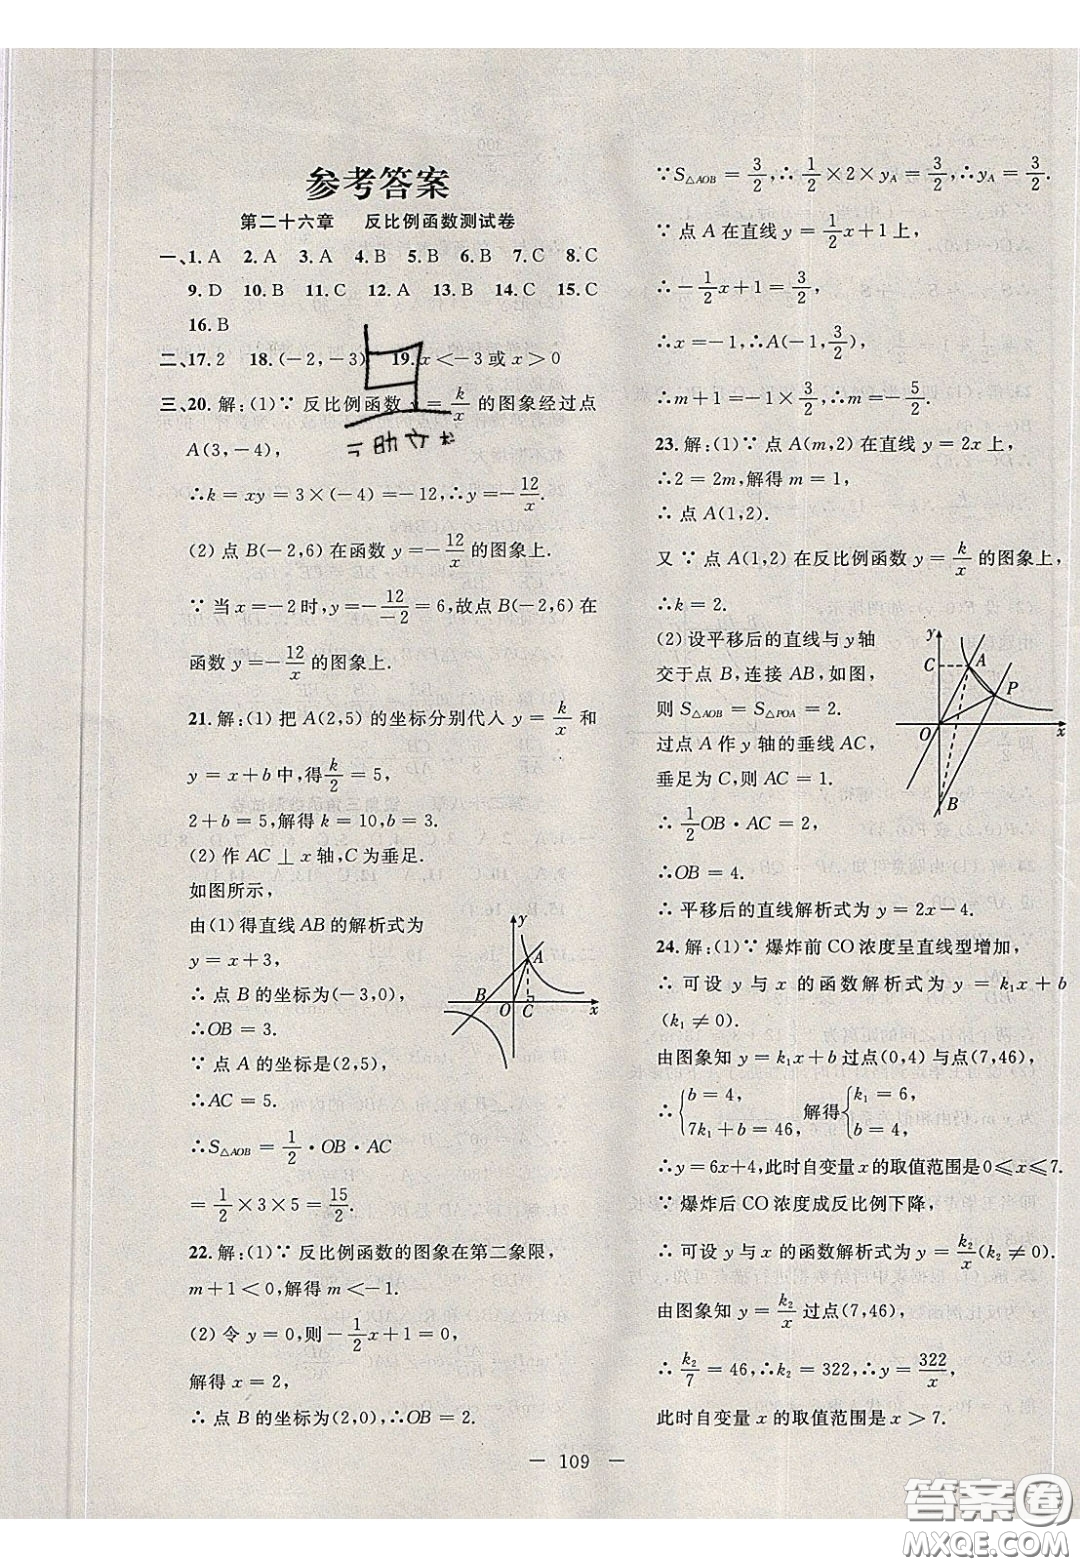 参考答案
第二十六章 反比例函数测试卷
一、1.A 2.A 3.A 4.B 5.B 6.B 7.C 8.C
9.D 10.B 11.C 12.A 13.B 14.C 15.C
16.B
二、17.2 18.(-2,-3) 19.x<-3或x>0
三、20.解:(1)∵反比例函数y=k/x的图象经过点
A(3,-4),
∴k=xy=3×(-4)=-12,∴y=-12/x.
(2)点B(-2,6)在函数y=-12/x的图象上.
∵当x=-2时,y=-12/-2=6,故点B(-2,6)在
函数y=-12/x的图象上.
21.解:(1)把A(2,5)的坐标分别代入y=k/x和
y=x+b中,得k/2=5,
2+b=5,解得k=10,b=3.
(2)作AC⊥x轴,C为垂足.
如图所示,
由(1)得直线AB的解析式为
y=x+3,
∴点B的坐标为(-3,0),
∴OB=3.
∵点A的坐标是(2,5),
∴AC=5.
∴S△AOB=1/2·OB·AC
=1/2×3×5=15/2.
y
A
B O C x
22.解:(1)∵反比例函数的图象在第二象限,
m+1<0,解得m<-1.
(2)令y=0,则-1/2x+1=0,
解得x=2,
∴点B的坐标为(2,0),∴OB=2.
∵S△AOB=3/2,∴1/2×2×yA=3/2,∴yA=3/2.
∵点A在直线y=-1/2x+1上,
∴-1/2x+1=3/2,
∴x=-1,∴A(-1,3/2),
∴m+1=-1×3/2,∴m=-5/2.
23.解:(1)∵点A(m,2)在直线y=2x上,
∴2=2m,解得m=1,
∴点A(1,2).
又∵点A(1,2)在反比例函数y=k/x的图象上,
∴k=2.
(2)设平移后的直线与y轴
交于点B,连接AB,如图,
则S△AOB=S△POA=2.
过点A作y轴的垂线AC,
垂足为C,则AC=1.
∴1/2OB·AC=2,
∴OB=4.
∴平移后的直线解析式为y=2x-4.
y
C A
P
O x
B
24.解:(1)∵爆炸前CO浓度呈直线型增加,
∴可设y与x的函数解析式为y=k₁x+b
(k₁≠0).
由图象知y=k₁x+b过点(0,4)与点(7,46),
∴{b=4, 7k₁+b=46, 解得{k₁=6, b=4,
∴y=6x+4,此时自变量x的取值范围是0≤x≤7.
∵爆炸后CO浓度成反比例下降,
∴可设y与x的函数解析式为y=k₂/x(k₂≠0).
由图象知y=k₂/x过点(7,46),
∴k₂/7=46,∴k₂=322,∴y=322/x,
此时自变量x的取值范围是x>7.
— 109 —
答案卷
MXQE.COM